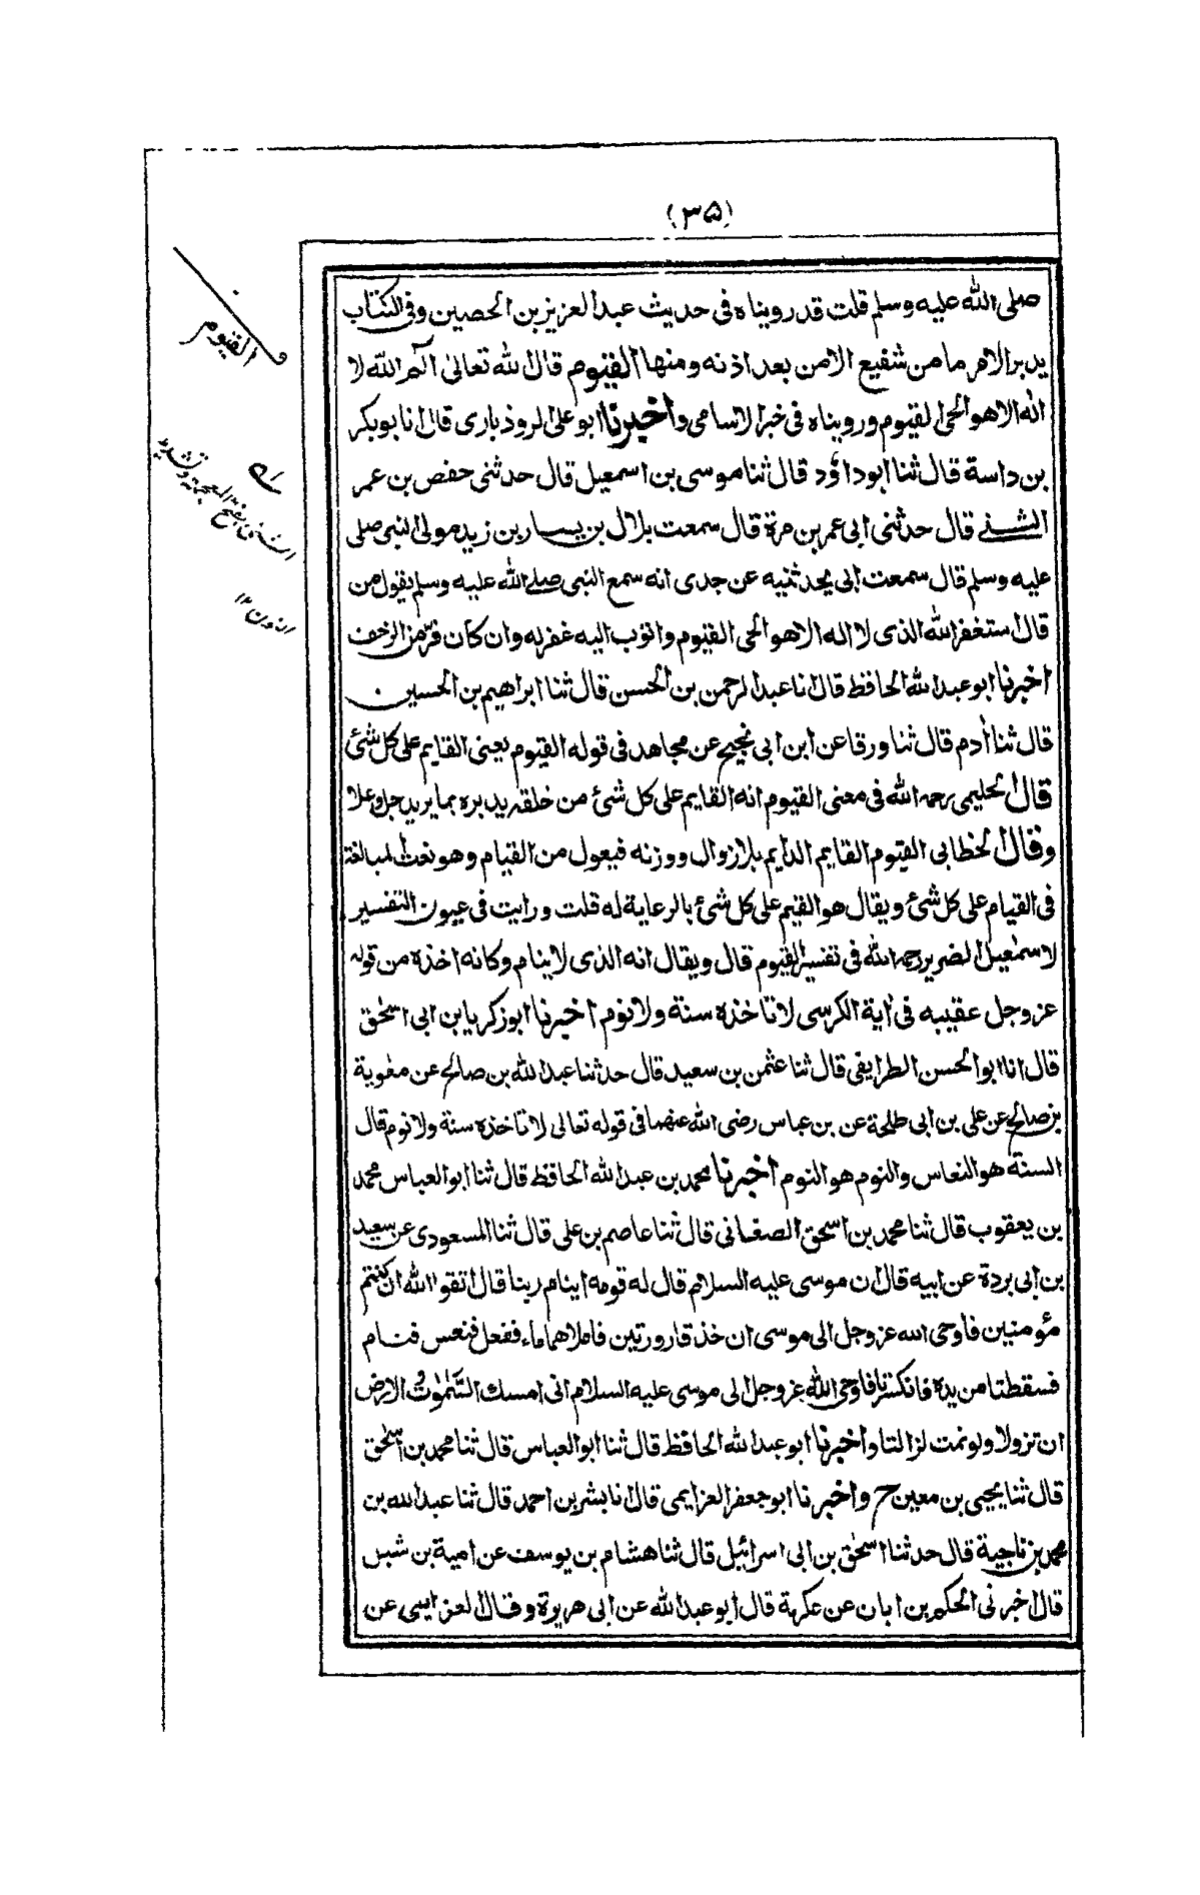 (٣٥)
صلى الله عليه وسلم قلت قد رويناه فى حديث عبد العزيز بن الحصين وفى الكتاب
يدبر الامر ما من شفيع الا من بعد اذنه ومنها القيوم قال الله تعالى الٓم الله لا
اله الا هو الحى القيوم ورويناه فى خبر الاسامى واخبرنا ابو على الروذبارى قال انا بو بكر
بن داسة قال ثنا ابو داؤد قال ثنا موسى بن اسمعيل قال حدثنى حفص بن عمر
الشنى قال حدثنى ابى عمر بن مرة قال سمعت بلال بن يسار بن زيد مولى النبى صلى
عليه وسلم قال سمعت ابى يحدثنيه عن جدى انه سمع النبى صلى الله عليه وسلم يقول من
قال استغفر الله الذى لا اله الا هو الحى القيوم واتوب اليه غفر له وان كان فرّ من الزحف
اخبرنا ابو عبد الله الحافظ قال انا عبد الرحمن بن الحسن قال ثنا ابراهيم بن الحسين
قال ثنا أدم قال ثنا ورقا عن ابن ابى نجيح عن مجاهد فى قوله القيوم يعنى القايم على كل شئ
قال الحليمى رحمه الله فى معنى القيوم انه القايم على كل شئ من خلقه يدبره بما يريد جل وعلا
وقال الخطابى القيوم القايم الدايم بلا زوال ووزنه فيعول من القيام وهو نعت لمبالغة
فى القيام على كل شئ ويقال هو القيم على كل شئ بالرعاية له قلت ورايت فى عيون التفسير
لاسمٰعيل الضرير رحمه الله فى تفسير القيوم قال ويقال انه الذى لا ينام وكانه اخذه من قوله
عز وجل عقيبه فى أية الكرسى لا تاخذه سنة ولا نوم اخبرنا ابو زكريا بن ابى اسحٰق
قال انا ابو الحسن الطرايفى قال ثنا عثمٰن بن سعيد قال حدثنا عبد الله بن صالح عن معٰوية
بن صالح عن على بن ابى طلحة عن بن عباس رضى الله عنهما فى قوله تعالى لا تاخذه سنة ولا نوم قال
السنة هو النعاس والنوم هو النوم اخبرنا محمد بن عبد الله الحافظ قال ثنا ابو العباس محمد
بن يعقوب قال ثنا محمد بن اسحق الصغانى قال ثنا عاصم بن على قال ثنا المسعودى عن سعيد
بن ابى بردة عن ابيه قال ان موسى عليه السلام قال له قومه اينام ربنا قال اتقوا الله ان كنتم
مؤمنين فاوحى الله عز وجل الى موسى ان خذ قارورتين فاملاهما ماء ففعل فنعس فنام
فسقطتا من يده فانكسرتا فاوحى الله عز وجل الى موسى عليه السلام انى امسك السّمٰوٰت والارض
ان تزولا ولو نمت لزالتا واخبرنا ابو عبد الله الحافظ قال ثنا ابو العباس قال ثنا محمد بن اسٰحق
قال ثنا يحيى بن معين ح واخبرنا ابو جعفر العزايمى قال انا بشر بن احمد قال ثنا عبد الله بن
محمد بن ناجية قال حدثنا اسحٰق بن ابى اسرائيل قال ثنا هشام بن يوسف عن امية بن شبل
قال اخبرنى الحكم بن ابان عن عكرمة قال ابو عبد الله عن ابى هريرة وقال العزايمى عن
القيوم
الشنى بفتح المعجمة وتشديد
النون ١٢